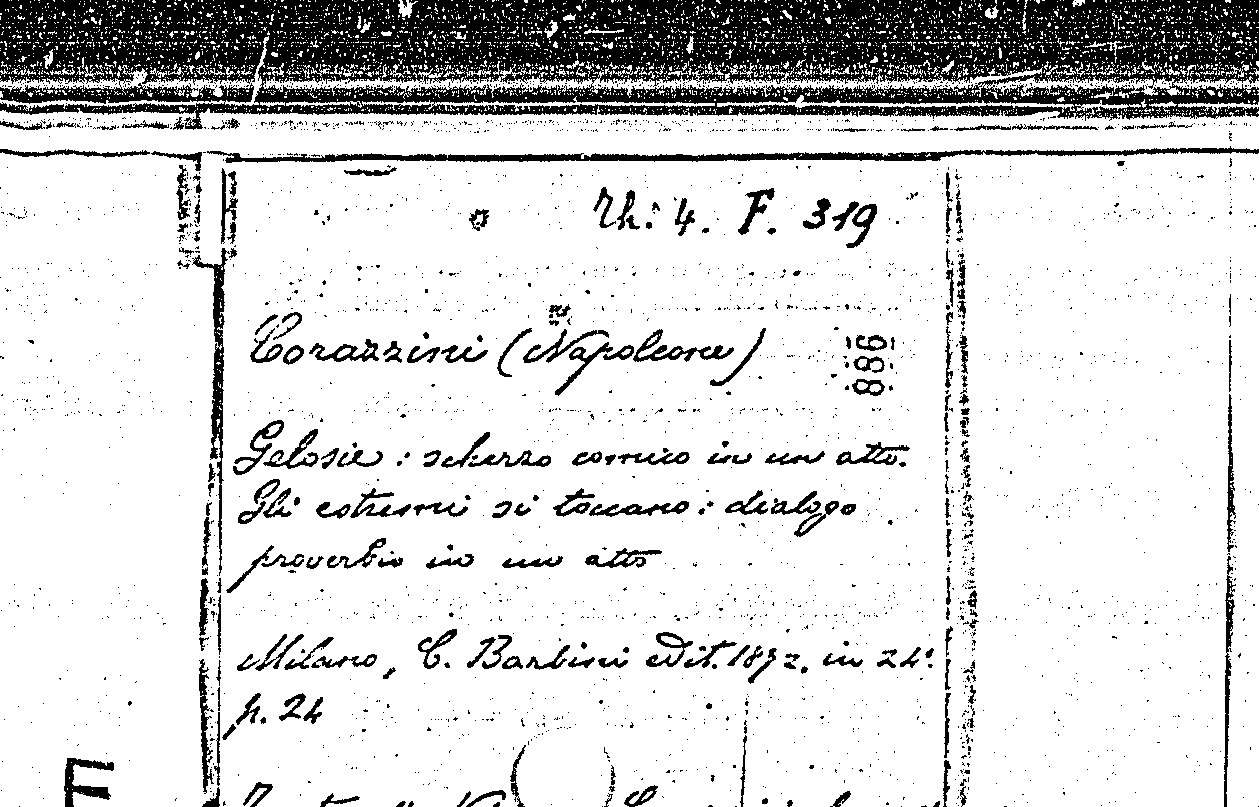 Rh: 4. F. 319
Corazzini (Napoleone)
886
Gelosie : scherzo comico in un atto.
Gli estremi si toccano : dialogo
proverbio in un atto
Milano, C. Barbini Edit. 1872. in 24°.
p. 24
E